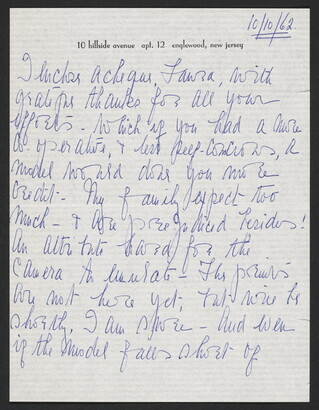 10/10/62
10 hillside avenue apt. 12 englewood, new jersey
I enclose a cheque Laura, with
grateful thanks for all your
efforts - which if you had a more
co-operative, & less self-conscious, a
model would done you more
credit - My family expect too
much - & are prejudiced besides!
An attitute hard for the
Camera to emulate - The prints
are not here yet, but will be
shortly, I am sure - And even
if the model falls short of